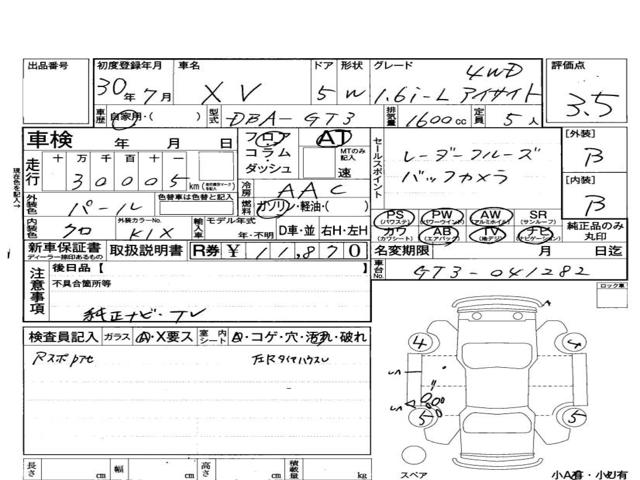 出品番号 初度登録年月 車名 ドア 形状 グレード 評価点
30年 7月 XV 5 W 4WD
1.6i-L アイサイト 3.5
車歴 自家用・( ) 型式 DBA-GT3 排気量 1600cc 定員 5人
車検 年 月 日 フロア AT セールスポイント 【外装】
コラム・ MTのみ記入 レーダークルーズ B
走行 十 万 千 百 十 一 ダッシュ 速 バックカメラ
現在色を記入→ 30005km 冷房 AAC 【内装】
外装色 パール 色替車は色替と記入 燃料 ガソリン・軽油・( ) B
PS (パワステ) PW (パワーウインド) AW (アルミホイル) SR (サンルーフ) 純正品のみ丸印
内装色 クロ 外装カラーNo. K1X 輸入車 モデル年式 年・不明 D車・並 右H・左H カワ (カワシート) AB (エアバッグ) TV (地デジ) ナビ (ナビゲーション)
新車保証書 ディーラー捺印あるもの 取扱説明書 R券 ¥11,870 名変期限 月 日迄
注意事項 後日品【 車台No. GT3-041282
不具合箇所等 ロック車
純正ナビ・TV
検査員記入 ガラス A・X要ス 室内 シート A・コゲ・穴・汚れ・破れ
4 4
5 5
長さ cm 幅 cm 高さ cm 積載量 kg スペア 小A有・小U有